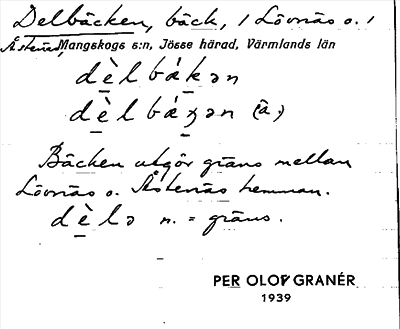 Delbäcken, bäck, / Lövnäs o. /
Åstenäs, Mangskogs s:n, Jösse härad, Värmlands län
dèlbákən
dèlbáɳən (ä.)
Bäcken utgör gräns mellan
Lövnäs o. Åstenäs hemman.
dèlə n. = gräns.
PER OLOF GRANÉR
1939